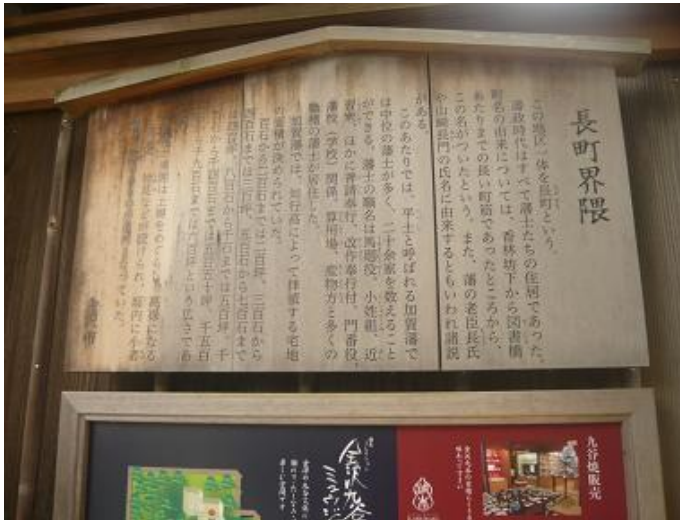 長町界隈
この地区一体を長町という。
藩政時代はすべて藩士たちの住居であった。
町名の由来については、香林坊下から図書橋
あたりまでの長い町筋であったところから、
この名がついたという。また、藩の老臣長氏
や山崎長門の氏名に由来するともいわれ諸説
がある。
このあたりでは、平士と呼ばれる加賀藩で
は中位の藩士が多く、二十余家を数えること
ができる。藩士の職名は馬廻役、小姓組、近
習衆、ほかに普請奉行、改作奉行付、門番役、
藩校（学校）関係、算用場、産物方と多くの
職種の藩士が居住した。
加賀藩では、知行高によって拝領する宅地
の面積が決められていた。
百石から二百石までは二百坪、三百石から
四百石までは三百坪、五百石から七百石まで
は四百坪、八百石から千石までは五百坪、千
千五百
九百石までは六百坪という広さであ
は土塀をめぐらし、
が設けられ、
ていた。
九谷焼販売
金沢九谷
ミュウジ